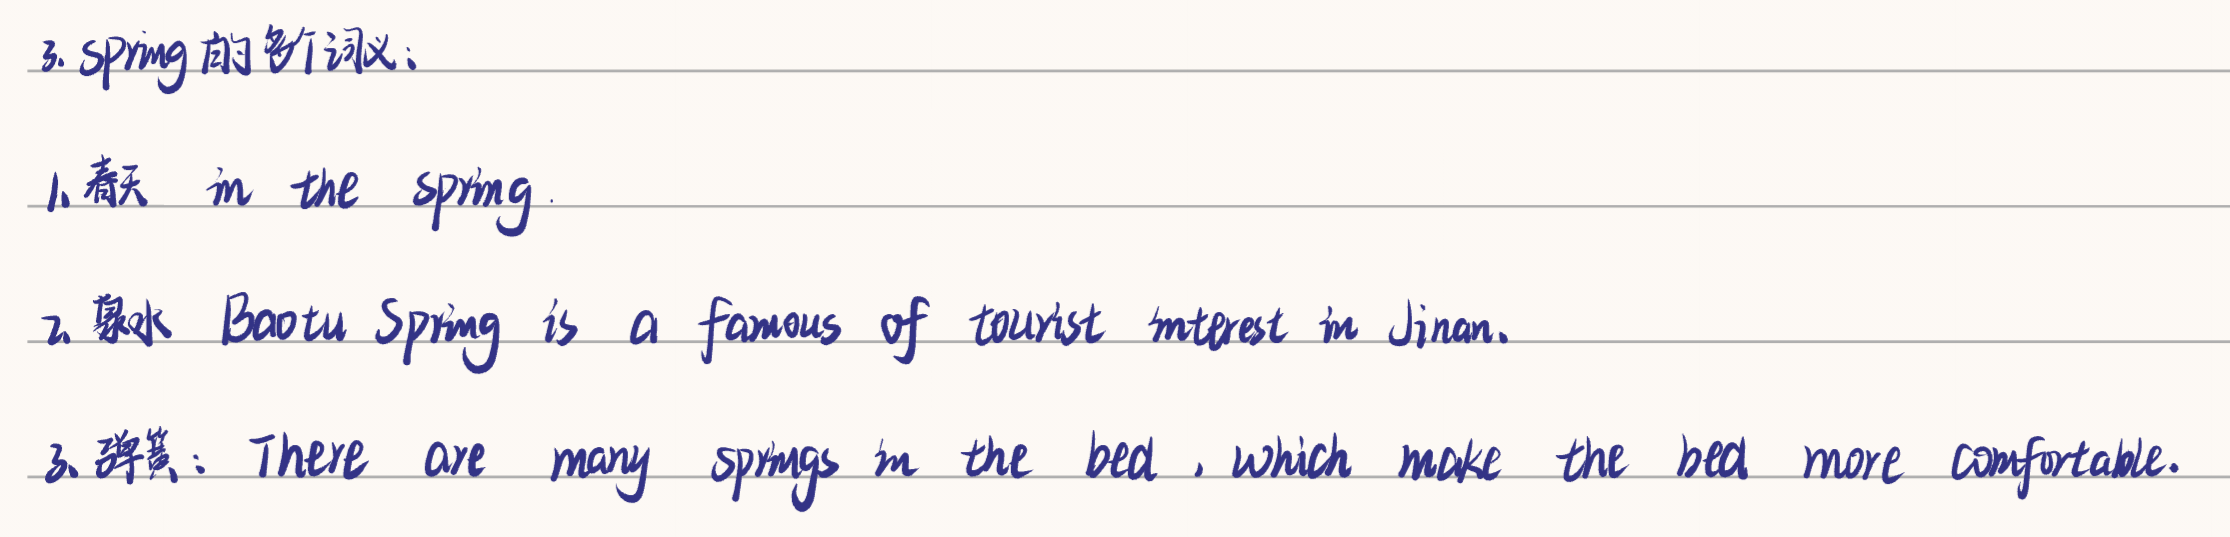 3. spring 的多个词义：
1. 春天 in the spring.
2. 泉水 Baotu Spring is a famous of tourist interest in Jinan.
3. 弹簧：There are many springs in the bed, which make the bed more comfortable.